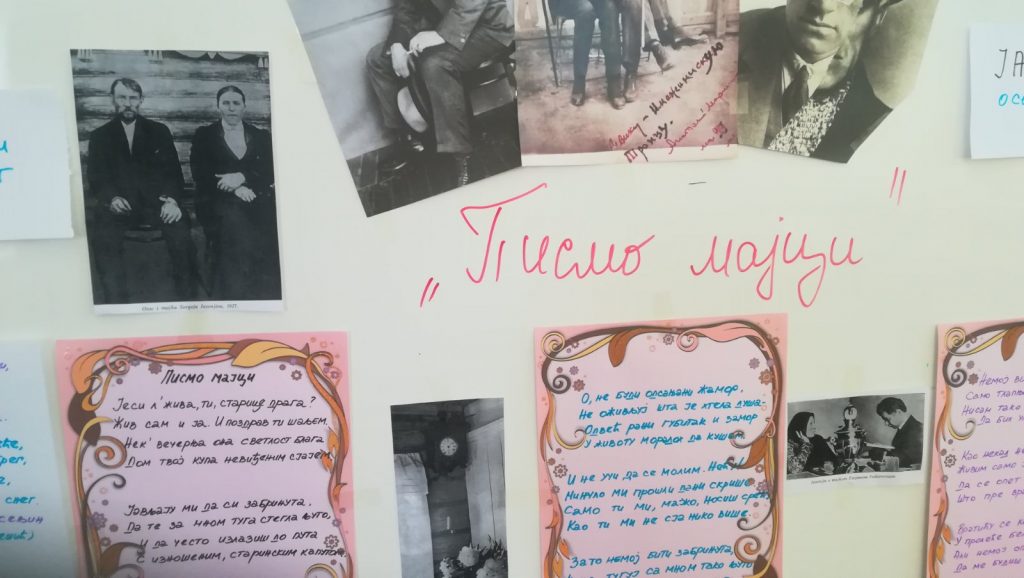 „Писмо мајци"
Отац и мајка Сергеја Јесењина, 1927.
ЈА
осе
Писмо мајци
Јеси л' жива, ти, старице драга?
Жив сам и ја. И поздрав ти шаљем.
Нек' вечерња она светлост блага
Дом твој купа невиђеним сјајем.
Јављају ми да си забринута,
Да те за мном туга стегла љуто,
И да често излазиш до пута
изношеним, старинским капутом,
О, не буди одсањани жамор,
Не оживљуј шта је хтела душа.
Одвећ рани губитак и замор
У животу морадох да кушам.
И не учи да се молим.
Минуло ми прошли дани скрише.
Само ти ми, мајко, носиш
Као ти ми не сја нико више.
Зато немој бити забринута,
тугуј са мном тако љуто
Немој
Само
Нисам тако
Да бих
Као некад
Живим само
Да се опет
Што пре
Вратићу се
У пролеће
Али немој
Да ме будиш
снег.